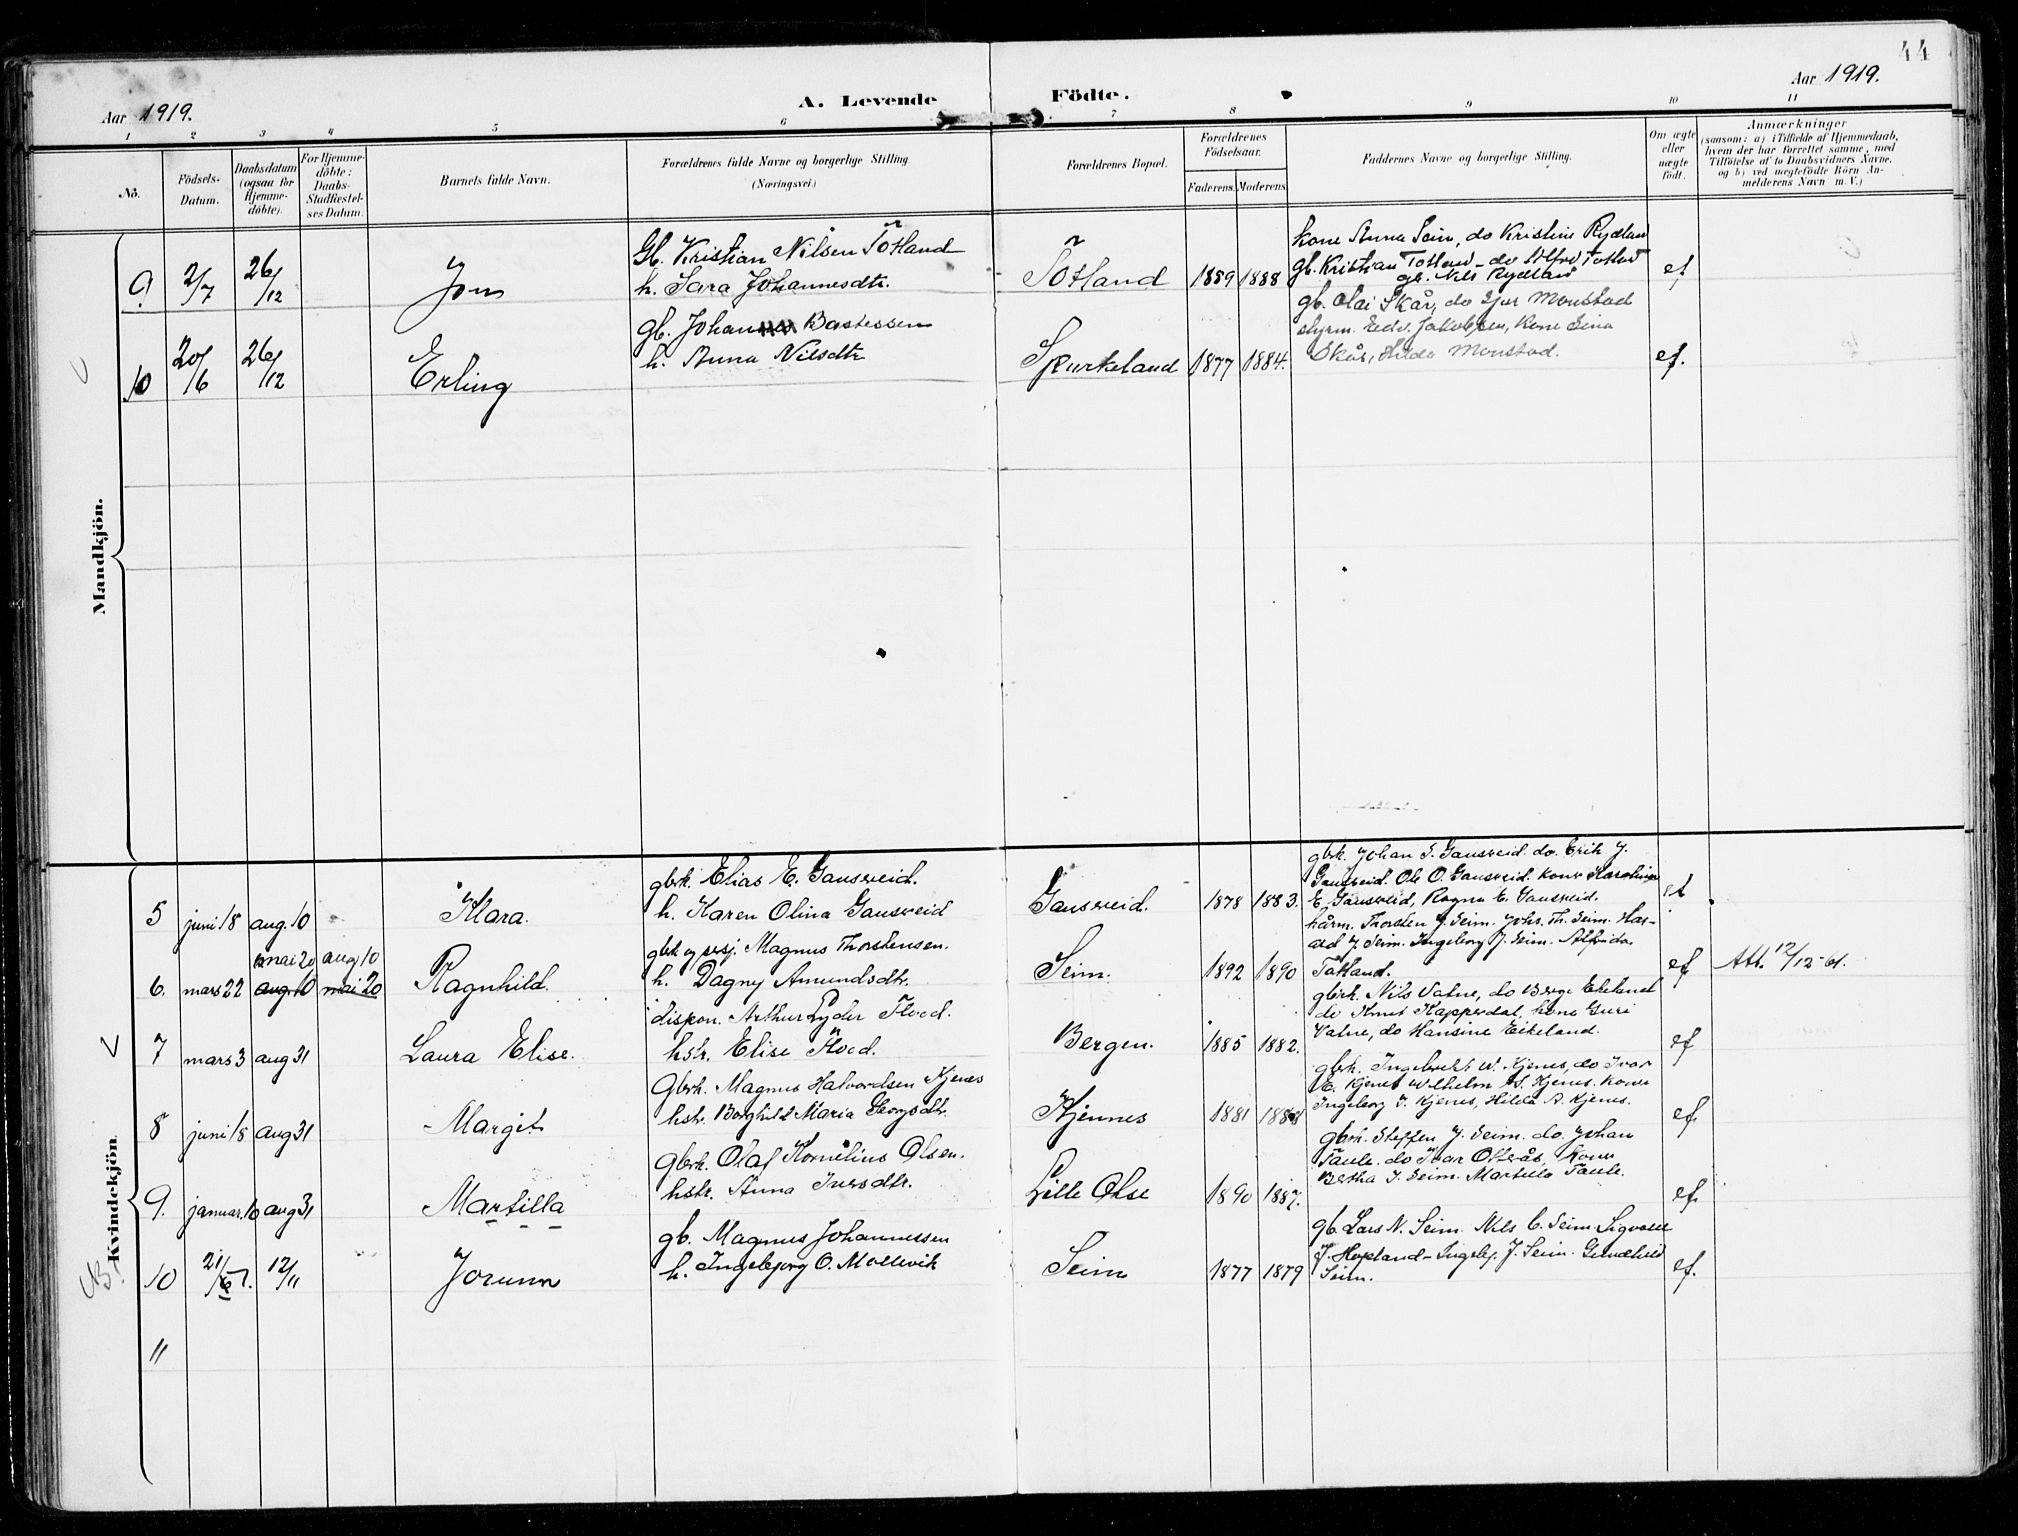 44
Aar 1919.
A. Levende Födte.
Aar 1919.
1 2 3 4 5 6 7 8 9 10 11
No.
Födsels-Datum.
Daabsdatum (ogsaa for Hjemme-döbte).
For Hjemme-döbte: Daabs-Stadfæstel-ses Datum.
Barnets fulde Navn.
Forældrenes fulde Navne og borgerlige Stilling.
(Næringsvei.)
Forældrenes Bopæl.
Forældrenes Födselsaar.
Faderens. Moderens.
Faddernes Navne og borgerlige Stilling.
Om ægte eller uægte födt.
Anmærkninger
(saasom: a) i Tilfælde af Hjemmedaab,
hvem der har forrettet samme, med
Tilföielse af to Daabsvidners Navne,
og b) ved uægtefödte Börn An-
melderens Navn m. V.)
Mandkjön.
9 2/7 26/12 Jon
Gb. Kristian Nilsen Totland
h. Sara Johannesdtr.
Totland 1889 1888
kone Anna Seim, do Kristine Rydland
gb. Kristian Totland - do Alfred Totland
gb. Nils Rydland
ef
10 20/6 26/12 Erling
gb. Johannes Bastessen
h. Anna Nilsdtr
Skurkeland 1877 1884.
gb. Olai Skår, do Ivar Monstad
styrm. Edv. Jakobsen, kone Sina
Skår, Hilda Monstad.
ef.
Kvindekjön.
5 juni 18 aug. 10 Klara.
gbrk. Elias E. Gausereid.
h. Karen Olina Gausereid
Gausereid. 1878 1883.
gbrk. Johan S. Gausereid. do. Erik J.
Gausereid. Ole O. Gausereid. kone Karoline
E. Gausereid, Ragna E. Gausereid.
ef
6. mars 22 mai 20 aug 10 aug. 10 mai 20 Ragnhild.
gbrk og Magnus Thorstensen.
h. Dagny Amundsdtr.
Seim. 1892 1890
hårm. Thorsten J. Seim. Johs. Th. Seim. Har-
ald J. Seim. Ingeborg J. Seim. Alfrida
Totland.
ef
Att. 12/12-61.
7 mars 3 aug 31 Laura Elise.
dispon. Arthur Lyder Floed.
hstr. Elise Floed.
Bergen. 1885 1882.
gbrk. Nils Valne, do Børge Ekeland
do Knut Kapperdal, kone Guri
Valne, do Hansine Eikeland.
ef
8 juni 18 aug 31 Margit
Gbrk. Magnus Halvordsen Kjenes
hstr. Borghild Maria Georgsdtr.
Kjennes 1881 1888
gbrk. Ingebrekt W. Kjenes, do Ivar
E. Kjenes Wilhelm S. Kjenes. kone
Ingeborg I. Kjenes, Hilda A. Kjenes.
ef.
9. januar. 10 aug 31 Martilla
gbrk. Olaf Kornelius Olsen.
hstr. Anna Iversdtr.
Lille Olse 1890 1887.
gbrk. Steffen J. Seim. do. Johan
Taule. do Ivar Otterås, kone
Bertha J. Seim. Martilla Taule.
ef.
10 21/6 12/11 Jorunn
gb. Magnus Johannessen
h. Ingebjørg O. Mollevik
Seim 1877 1879
gb. Lars N. Seim. Nils C. Seim. Sigvald
J. Hopland - Ingebj. J. Seim. Gundhild
Seim.
ef.
11